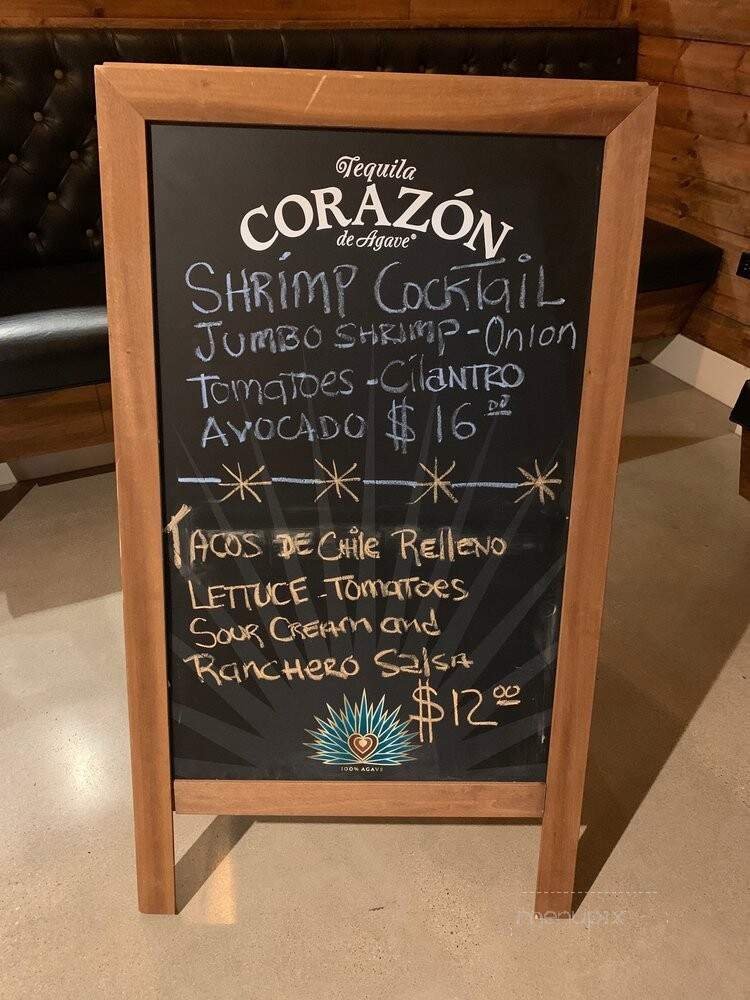 Tequila
CORAZÓN
de Agave®
SHRIMP COCKTAIL
JUMBO SHRIMP - ONION
TOMATOES - CILANTRO
AVOCADO $16 00
TACOS DE CHILE RELLENO
LETTUCE - TOMATOES
SOUR CREAM and
RANCHERO SALSA
$12 00
100% AGAVE
menupix